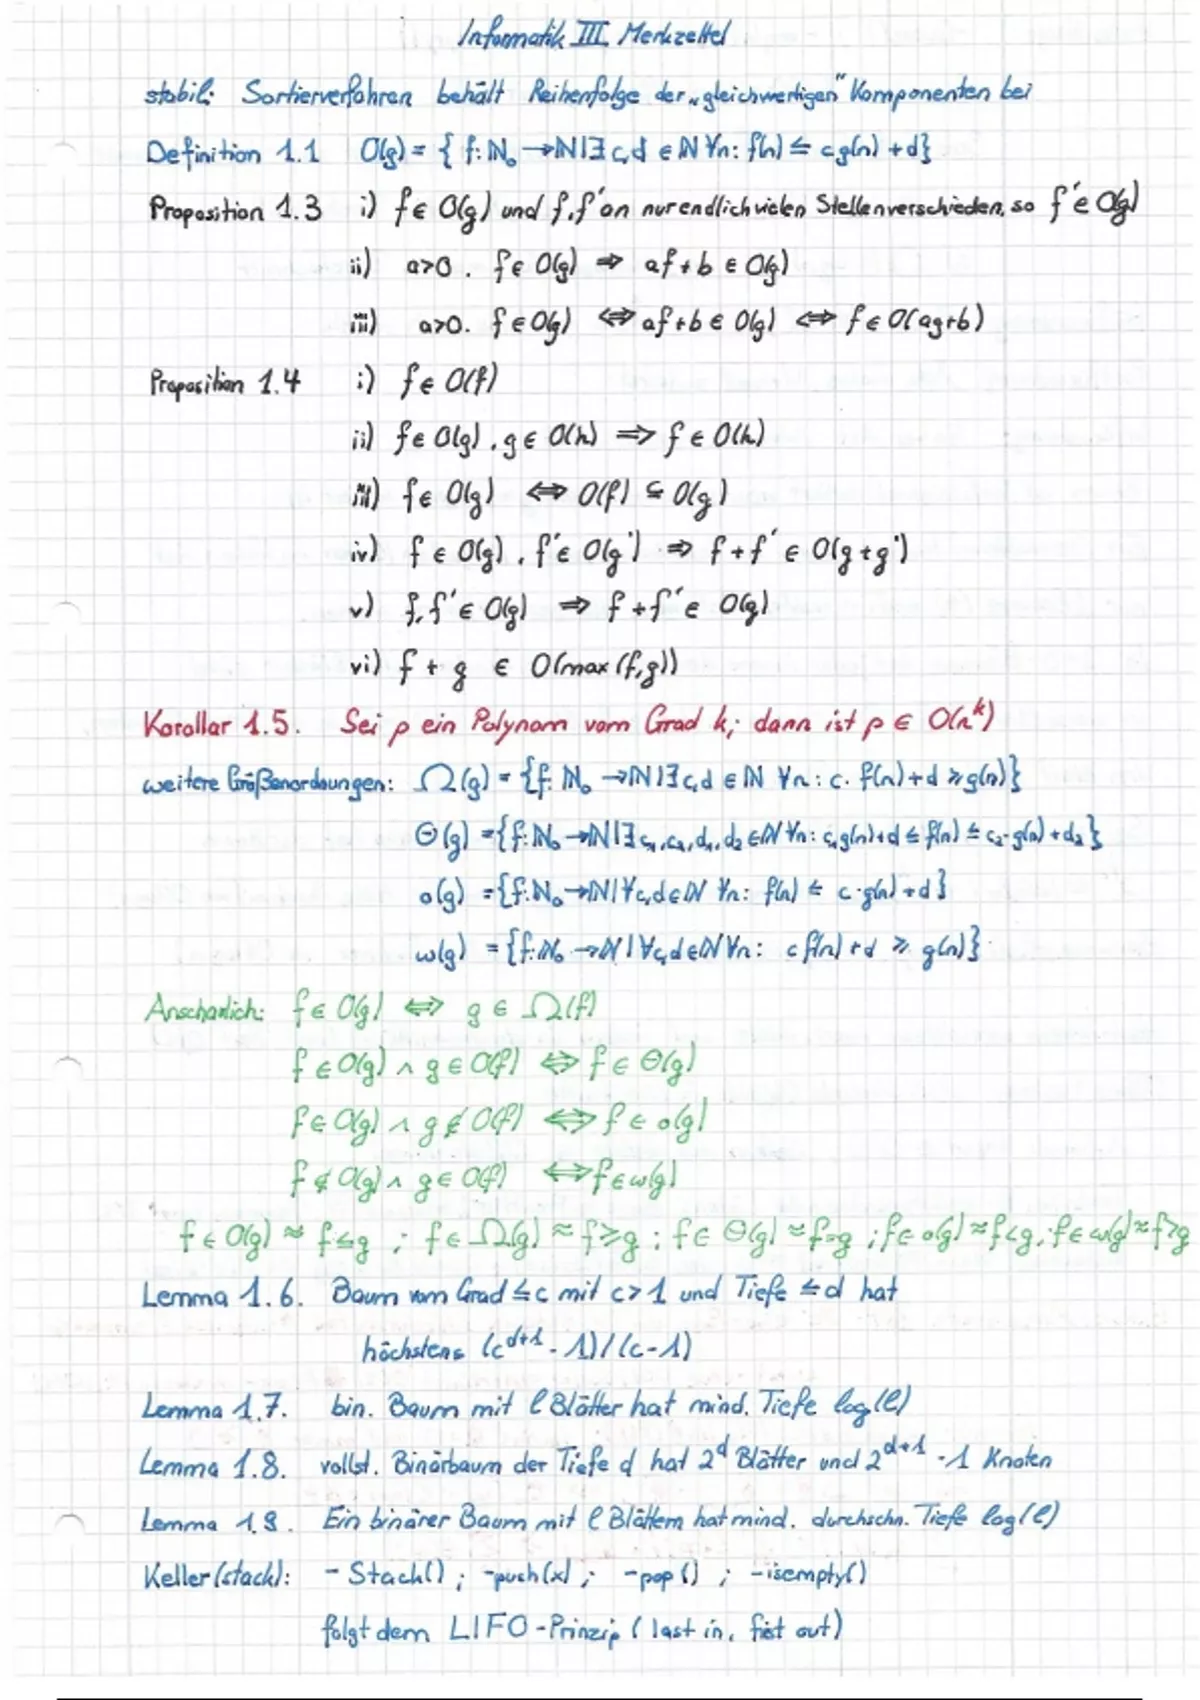 Informatik III Merkzettel
stabil: Sortierverfahren behält Reihenfolge der „gleichwertigen" Komponenten bei
Definition 1.1 O(g) = { f: ℕ₀ → ℕ | ∃ c,d ∈ ℕ ∀n: f(n) ≤ c g(n) + d}
Proposition 1.3 i) f ∈ O(g) und f, f' an nur endlich vielen Stellen verschieden, so f' ∈ O(g)
ii) a>0. f ∈ O(g) ⇒ af + b ∈ O(g)
iii) a>0. f ∈ O(g) ⇔ af+b ∈ O(g) ⇔ f ∈ O(ag+b)
Proposition 1.4 i) f ∈ O(f)
ii) f ∈ O(g), g ∈ O(h) ⇒ f ∈ O(h)
iii) f ∈ O(g) ⇔ O(f) ⊆ O(g)
iv) f ∈ O(g), f' ∈ O(g') ⇒ f + f' ∈ O(g+g')
v) f, f' ∈ O(g) ⇒ f + f' ∈ O(g)
vi) f + g ∈ O(max(f,g))
Korollar 1.5. Sei p ein Polynom vom Grad k; dann ist p ∈ O(n^k)
weitere Größenordnungen: Ω(g) = {f: ℕ₀ → ℕ | ∃ c,d ∈ ℕ ∀n: c · f(n)+d ≥ g(n)}
Θ(g) = {f: ℕ₀ → ℕ | ∃ c₁,c₂,d₁,d₂ ∈ ℕ ∀n: c₁g(n)+d ≤ f(n) ≤ c₂·g(n)+d₂}
o(g) = {f: ℕ₀ → ℕ | ∀c,d ∈ ℕ ∀n: f(n) ≤ c·g(n)+d}
ω(g) = {f: ℕ₀ → ℕ | ∀c,d ∈ ℕ ∀n: c f(n)+d ≥ g(n)}
Anschaulich: f ∈ O(g) ⇔ g ∈ Ω(f)
f ∈ O(g) ∧ g ∈ O(f) ⇔ f ∈ Θ(g)
f ∈ O(g) ∧ g ∉ O(f) ⇔ f ∈ o(g)
f ∉ O(g) ∧ g ∈ O(f) ⇔ f ∈ ω(g)
f ∈ O(g) ≈ f≤g ; f ∈ Ω(g) ≈ f≥g ; f ∈ Θ(g) ≈ f=g ; f ∈ o(g) ≈ f<g, f ∈ ω(g) ≈ f>g
Lemma 1.6. Baum vom Grad ≤ c mit c > 1 und Tiefe ≤ d hat
höchstens (c^(d+1) - 1)/(c-1)
Lemma 1.7. bin. Baum mit l Blätter hat mind. Tiefe log(l)
Lemma 1.8. vollst. Binärbaum der Tiefe d hat 2^d Blätter und 2^(d+1) - 1 Knoten
Lemma 1.9. Ein binärer Baum mit l Blättern hat mind. durchschn. Tiefe log(l)
Keller (stack): - Stack() ; -push(x) ; -pop() ; -isempty()
folgt dem LIFO-Prinzip (last in, first out)